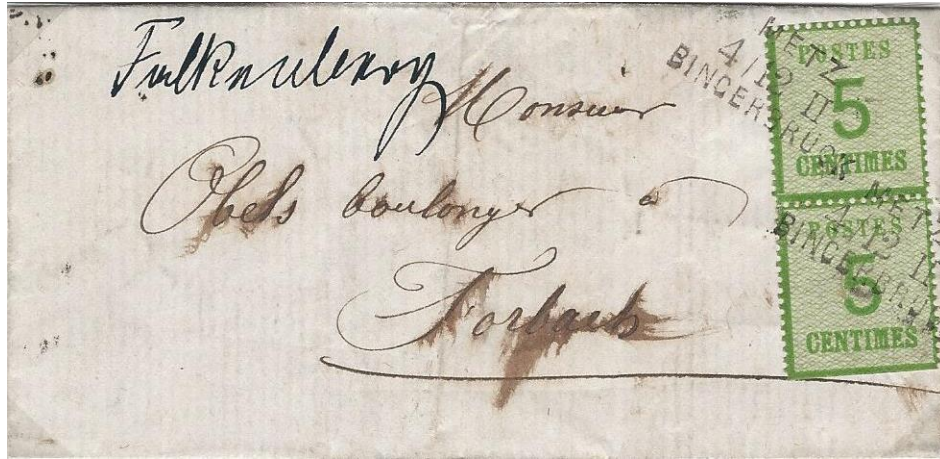 Falkenberg
Monsieur
Obels boulonger a
Forbach
METZ
4/12 II
BINGERBRUCK
POSTES
5
CENTIMES
METZ
4/12 II
BINGERBRUCK
POSTES
5
CENTIMES